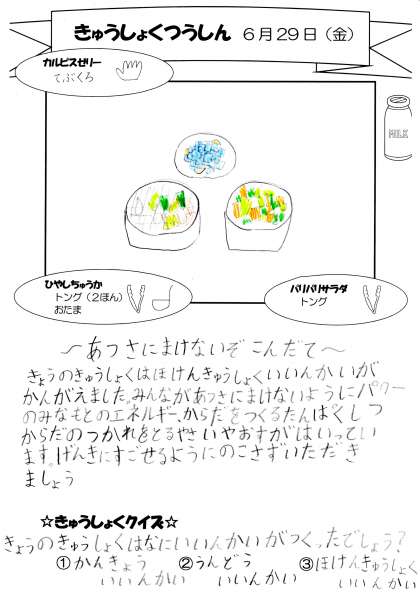 きゅうしょくつうしん 6月29日（金）
カルピスゼリー
てぶくろ
MILK
ひやしちゅうか
トング（2ほん）
おたま
パリパリサラダ
トング
～あつさにまけないぞ こんだて～
きょうのきゅうしょくはほけんきゅうしょくいいんかいが
かんがえました。みんながあつさにまけないようにパワー
のみなもとのエネルギー、からだをつくるたんぱくしつ
からだのつかれをとるやさいやおすがはいってい
ます。げんきにすごせるようにのこさずいただき
ましょう
☆きゅうしょくクイズ☆
きょうのきゅうしょくはなにいいんかいがつくったでしょう？
①かんきょう
いいんかい
②うんどう
いいんかい
③ほけんきゅうしょく
いいんかい